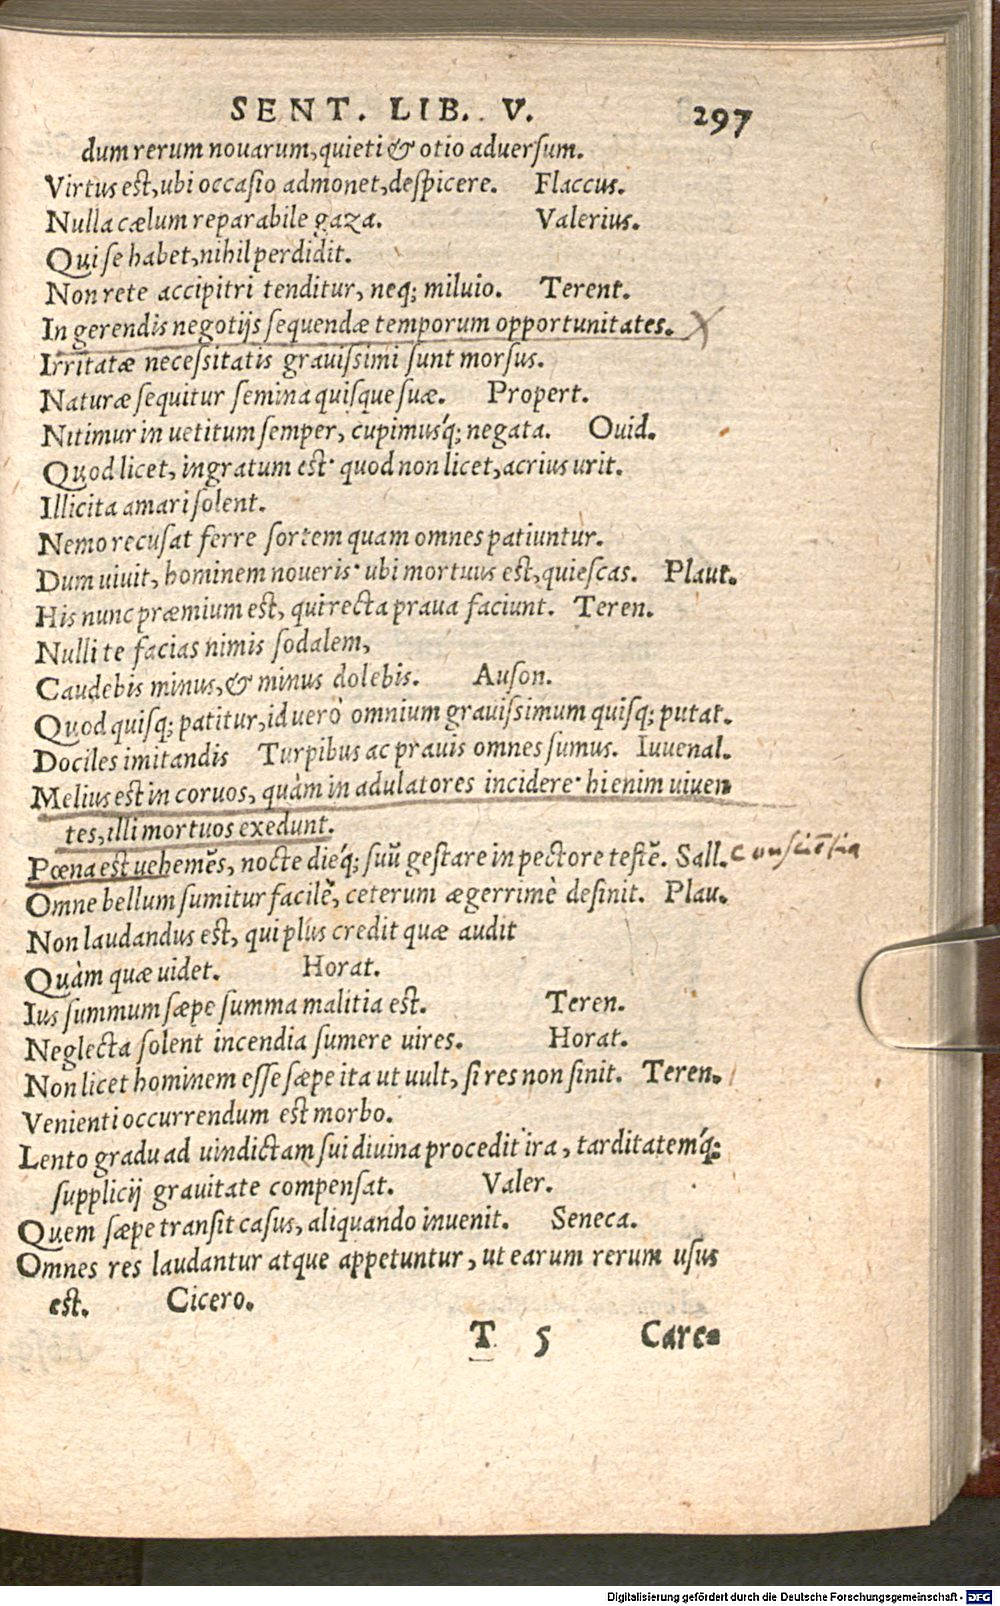 SENT. LIB. V. 297
dum rerum nouarum, quieti & otio aduersum.
Virtus est, ubi occasio admonet, despicere. Flaccus.
Nulla cælum reparabile gaza. Valerius.
Qui se habet, nihil perdidit.
Non rete accipitri tenditur, neq; miluio. Terent.
In gerendis negotijs sequendæ temporum opportunitates. X
Irritatæ necessitatis grauissimi sunt morsus.
Naturæ sequitur semina quisque suæ. Propert.
Nitimur in uetitum semper, cupimusq́; negata. Ouid.
Quod licet, ingratum est· quod non licet, acrius urit.
Illicita amari solent.
Nemo recusat ferre sortem quam omnes patiuntur.
Dum uiuit, hominem noueris· ubi mortuus est, quiescas. Plaut.
His nunc præmium est, qui recta praua faciunt. Teren.
Nulli te facias nimis sodalem,
Caudebis minus, & minus dolebis. Auson.
Quod quisq; patitur, id uerò omnium grauissimum quisq; putat.
Dociles imitandis Turpibus ac prauis omnes sumus. Iuuenal.
Melius est in coruos, quàm in adulatores incidere· hi enim uiuen
tes, illi mortuos exedunt.
Pœna est uehemẽs, nocte dieq́; suũ gestare in pectore testẽ. Sall. consciẽtia
Omne bellum sumitur facilè, ceterum ægerrimè desinit. Plau.
Non laudandus est, qui plus credit quæ audit
Quàm quæ uidet. Horat.
Ius summum sæpe summa malitia est. Teren.
Neglecta solent incendia sumere uires. Horat.
Non licet hominem esse sæpe ita ut uult, si res non sinit. Teren.
Venienti occurrendum est morbo.
Lento gradu ad uindictam sui diuina procedit ira, tarditatemq́;
supplicij grauitate compensat. Valer.
Quem sæpe transit casus, aliquando inuenit. Seneca.
Omnes res laudantur atque appetuntur, ut earum rerum usus
est. Cicero.
T 5 Care-
Digitalisierung gefördert durch die Deutsche Forschungsgemeinschaft - DFG